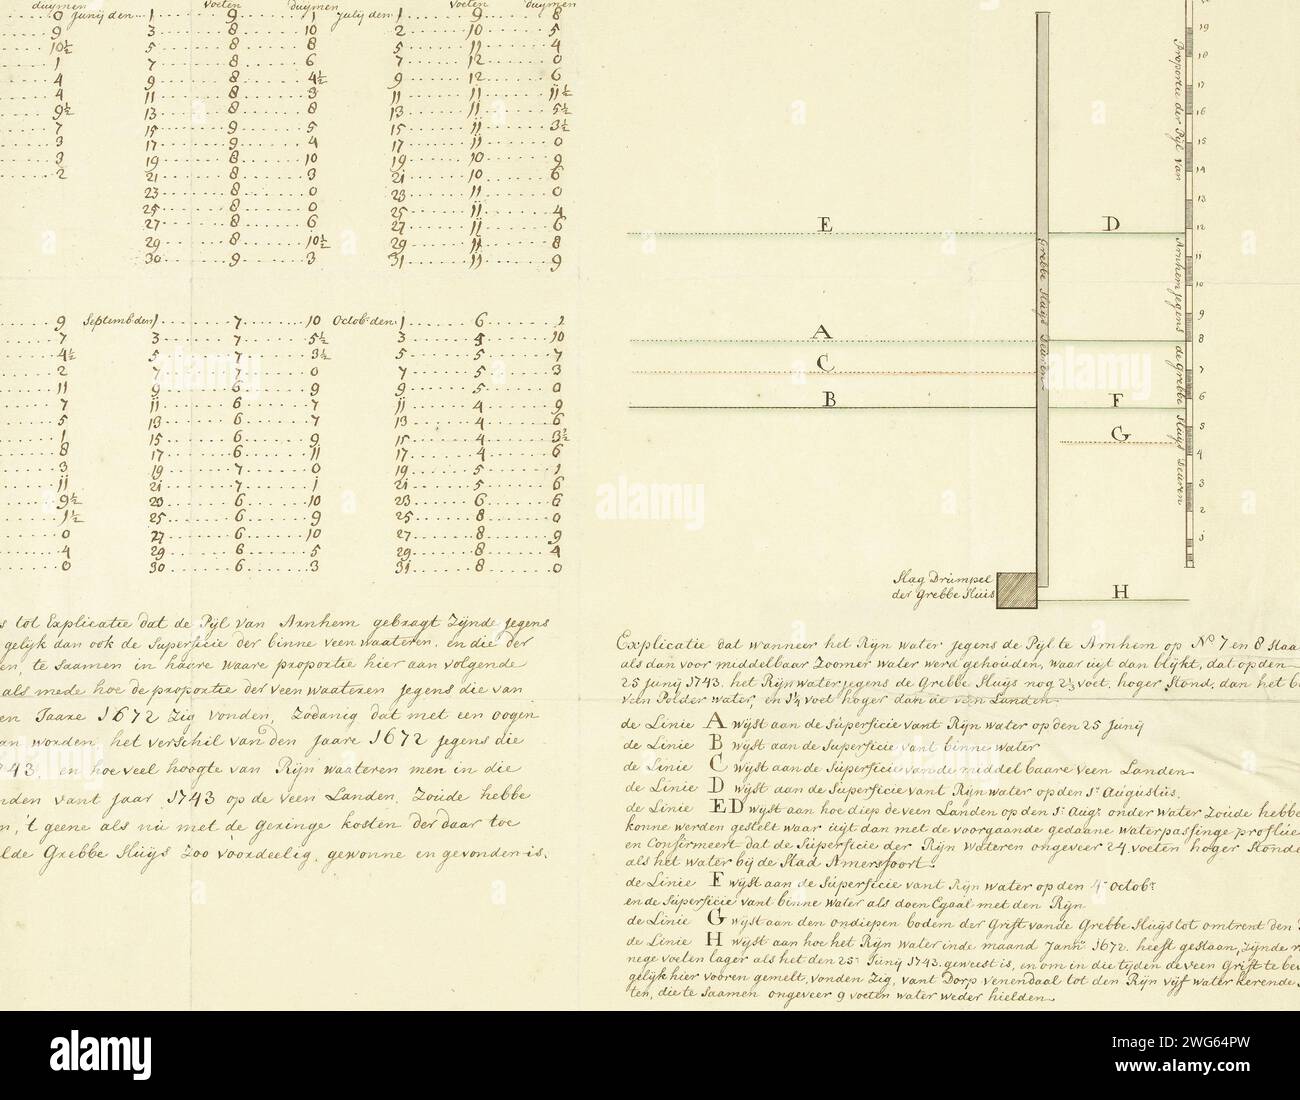 duymen voeten duymen voeten duymen
0 Junij den 1 9 1 Julij den 1 9 8
9 3 8 10 2 10 5
10½ 5 8 8 5 11 4
1 7 8 6 7 12 0
4 9 8 4½ 9 12 6
4 11 8 3 11 11 11½
9½ 13 8 8 13 11 5½
7 15 9 5 15 11 3½
3 17 9 4 17 11 0
3 19 8 10 19 10 9
2 21 8 3 21 10 6
23 8 0 23 11 0
25 8 0 25 11 4
27 8 6 27 11 6
29 8 10½ 29 11 8
30 9 3 31 11 9
9 Septemb: den 1 7 10 Octob: den 1 6 2
7 3 7 5½ 3 5 10
4½ 5 7 3½ 5 5 7
2 7 7 0 7 5 3
11 9 6 9 9 5 0
7 11 6 7 11 4 9
5 13 6 7 13 4 6
1 15 6 9 15 4 3½
8 17 6 11 17 4 6
3 19 7 0 19 5 1
11 21 7 1 21 5 6
9½ 23 6 10 23 6 6
1½ 25 6 9 25 8 0
0 27 6 10 27 8 9
4 29 6 5 29 8 4
0 30 6 3 31 8 0
s tot Explicatie dat de Pijl van Arnhem gebragt Zijnde jegens
gelijk dan ook de Superficie der binne veen waateren, en die der
en, te Saamen in haare waare proportie hier aan volgende
als mede hoe de proportie der veen waateren jegens die van
en Jaare 1672 Zig vonden, Zodanig dat met een oogen
an worden het verschil van den jaare 1672 jegens die
1743, en hoe veel hoogte van Rijn waateren men in die
nden vant jaar 1743 op de veen Landen, Zoude hebbe
n, 't geene als nu met de Geringe kosten der daar toe
lde Grebbe Sluijs Zoo voordeelig, gewonne en gevonden is.
E D
A
C
B F
G
H
Grebbe Sluijs deuren
Proportie der Pijl van
Arnhem jegens de grebbe sluijs deuren
19
18
17
16
15
14
13
12
11
10
9
8
7
6
5
4
3
2
1
Slag Drumpel
der Grebbe Sluis
Explicatie dat wanneer het Rijn water jegens de Pijl te Arnhem op N° 7 en 8 staa
als dan voor middelbaar Zoomer water werd gehouden, waar uijt dan blijkt, dat op den
25 junij 1743. het Rijn water jegens de Grebbe Sluijs nog 2⅓ voet, hoger Stond, dan het b
veen Polder water, en 1¼ voet hoger dan de veen Landen
de Linie A wijst aan de Superficie vant Rijn water op den 25 Junij
de Linie B wijst aan de Superficie vant binne water
de Linie C wijst aan de Superficie van de middelbaare veen Landen
de Linie D wijst aan de Superficie vant Rijn water op den 1e Augustus.
de Linie ED wijst aan hoe diep de veen Landen op den 1e Aug: onder water Zoude hebbe
konne werden gestelt waar uijt dan met de voorgaande gedaane waterpassinge proflue
en Confirmeert dat de Superficie der Rijn wateren ongeveer 24 voeten hoger Stonde
als het water bij de Stad Amersfoort.
de Linie F wijst aan de Superficie vant Rijn water op den 4e octobr
en de Superficie vant binne water als doen Egaal met den Rijn
de Linie G wijst aan den ondiepen bodem der Grift van de Grebbe Sluijs tot omtrent den
de Linie H wijst aan hoe het Rijn water in de maand Jann: 1672. heeft gestaan, Zijnde r
nege voeten lager als het den 25e Junij 1743. geweest is, en om in die tijden de veen Grift te be
gelijk hier vooren gemelt, vonden Zig, vant Dorp venendaal tot den Rijn vijf water kerende
ten, die te Saamen ongeveer 9 voeten water weder hielden
alamy
alamy
Image ID: 2WG64PW
www.alamy.com